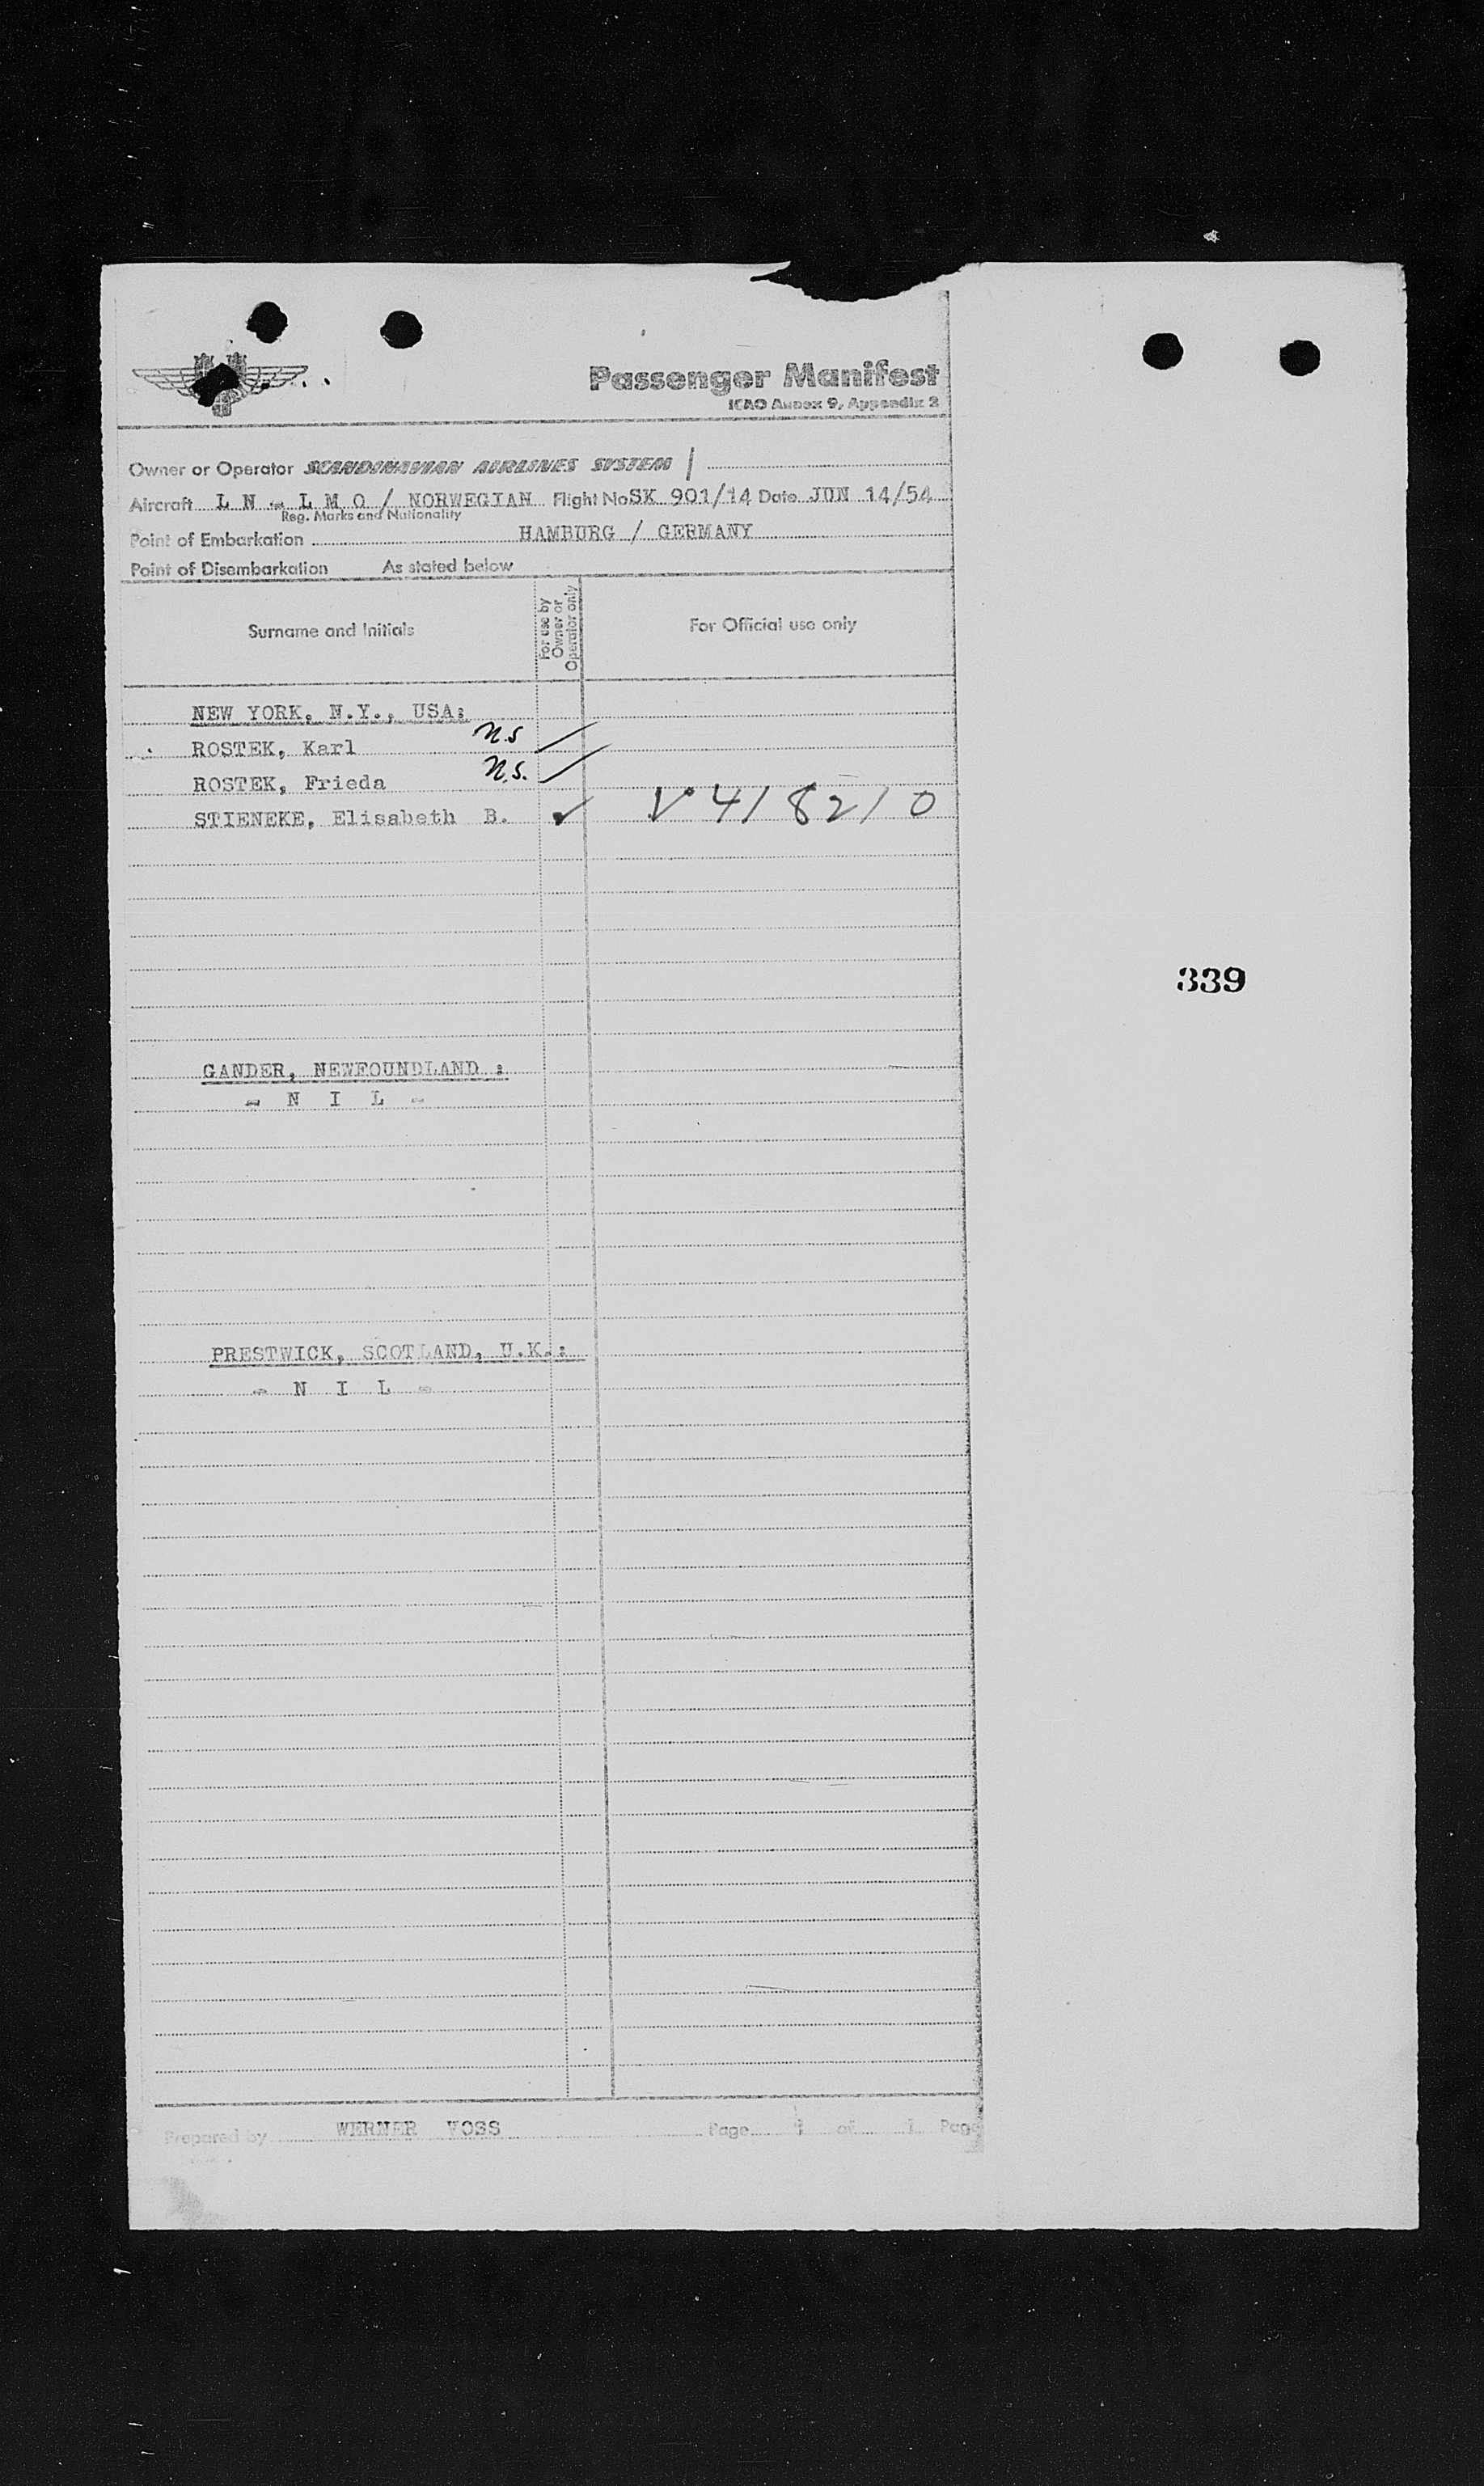 Passenger Manifest
ICAO Annex 9, Appendix 2
Owner or Operator SCANDINAVIAN AIRLINES SYSTEM
Aircraft L N - L M O / NORWEGIAN Flight No SK 901/14 Date JUN 14/54
Reg. Marks and Nationality
Point of Embarkation HAMBURG / GERMANY
Point of Disembarkation As stated below
Surname and Initials
For use by
Owner or
Operator only
For Official use only
NEW YORK, N.Y., USA:
ROSTEK, Karl n.s
ROSTEK, Frieda n.s.
STIENEKE, Elisabeth B. V 418210
339
GANDER, NEWFOUNDLAND :
- N I L -
PRESTWICK, SCOTLAND, U.K.:
- N I L -
Prepared by WERNER VOSS Page 1 of 1 Page